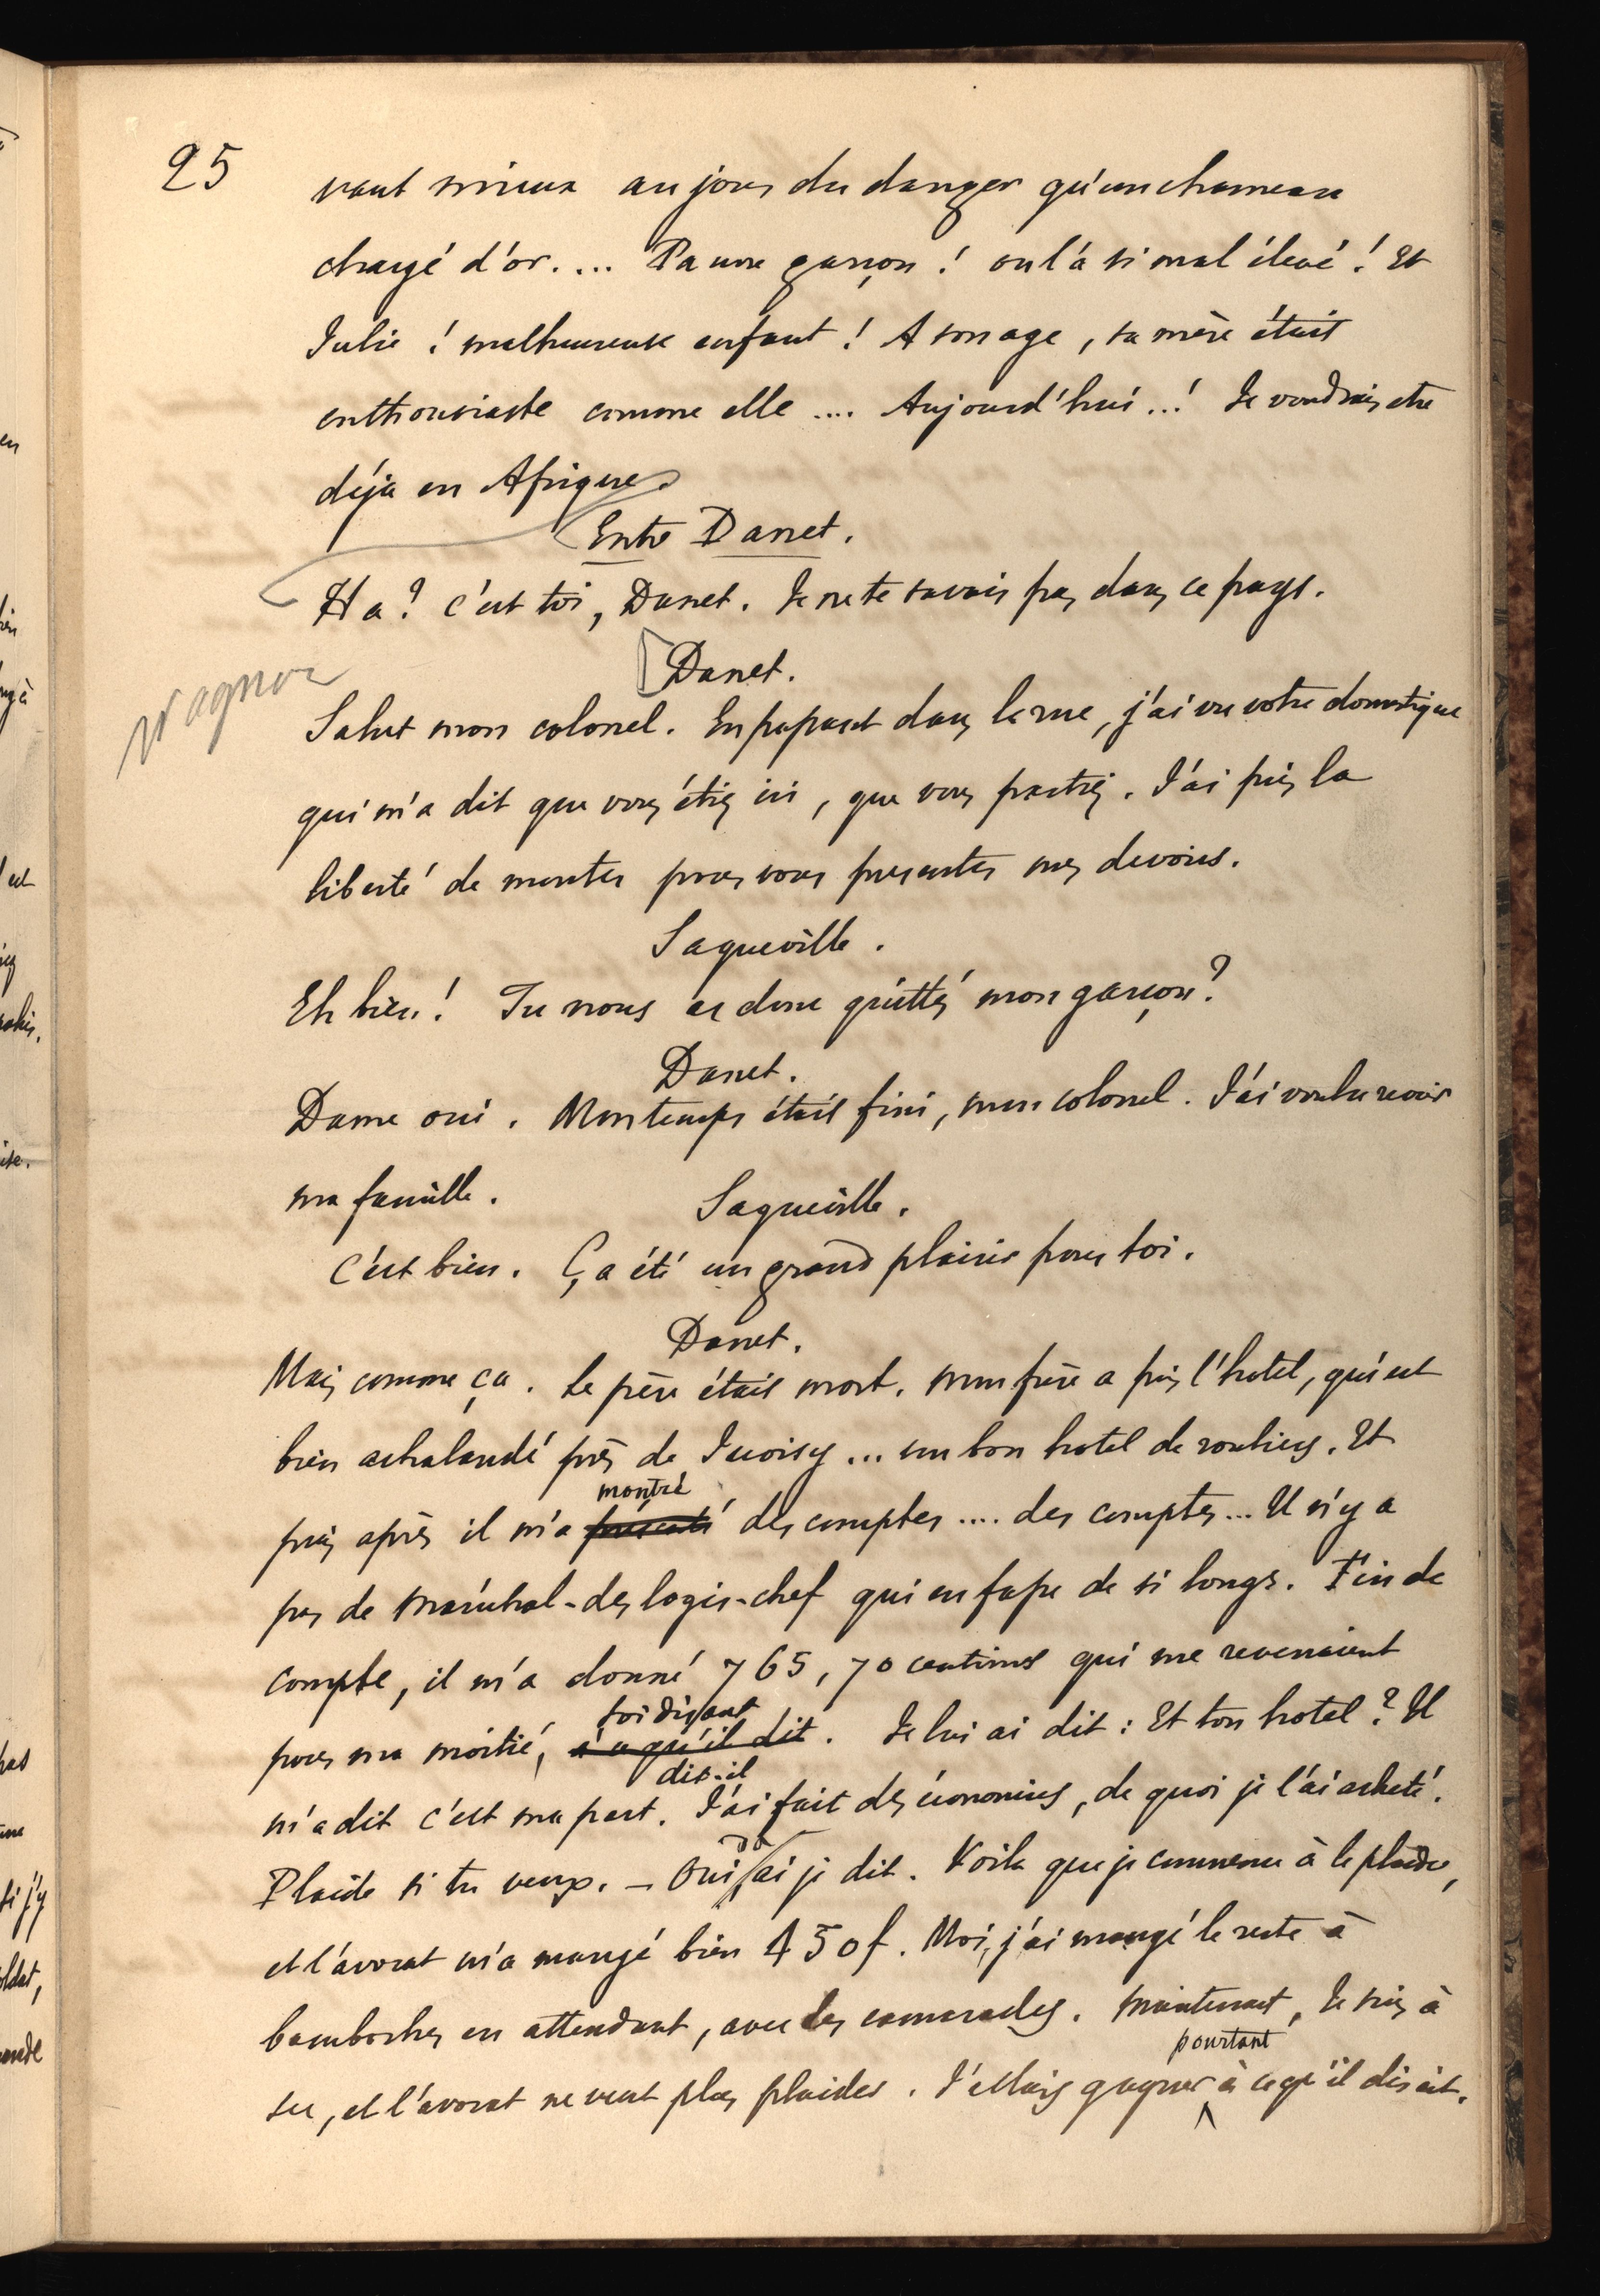 25
vaut mieux au jour du danger qu'un chameau
chargé d'or.... Pauvre garçon ! on l'a si mal élevé ! Et
Julie ! malheureuse enfant ! A son age, sa mère était
enthousiaste comme elle .... Aujourd'hui ..! Je voudrais etre
déja en Afrique.
Entre Danet.
Ha ? c'est toi, Danet. Je ne te savais pas dans ce pays.
Danet.
Salut mon colonel. En passant dans la rue, j'ai vu votre domestique
qui m'a dit que vous étiez ici, que vous partiez. J'ai pris la
liberté de monter pour vous presenter mes devoirs.
Saqueville.
Eh bien ! Tu nous as donc quittés mon garçon ?
Danet.
Dame oui. Mon temps était fini, mon colonel. J'ai voulu revoir
ma famille.
Saqueville.
C'est bien. Ça été un grand plaisir pour toi.
Danet.
Mais comme ça. Le père était mort. mon frère a pris l'hotel, qui est
bien achalandé près de Juvisy ... un bon hotel de rouliers. Et
montré
puis après il m'a présenté des comptes .... des comptes... Il n'y a
pas de maréchal-des logis-chef qui en fasse de si longs. Fin de
compte, il m'a donné 765,70 centimes qui me revenaient
soi disant
pour ma moitié, à ce qu'il dit. Je lui ai dit : Et ton hotel ? Il
dit-il
m'a dit c'est ma part. J'ai fait des économies, de quoi je l'ai acheté.
Plaide si tu veux. — Oui da ai je dit. Voila que je commence à le plaider,
et l'avocat m'a mangé bien 450f. Moi, j'ai mangé le reste à
bambocher en attendant, avec les camarades. Maintenant, Je suis à
pourtant
sec, et l'avocat ne veut plus plaider. J'allais gagner à ce qu'il disait.